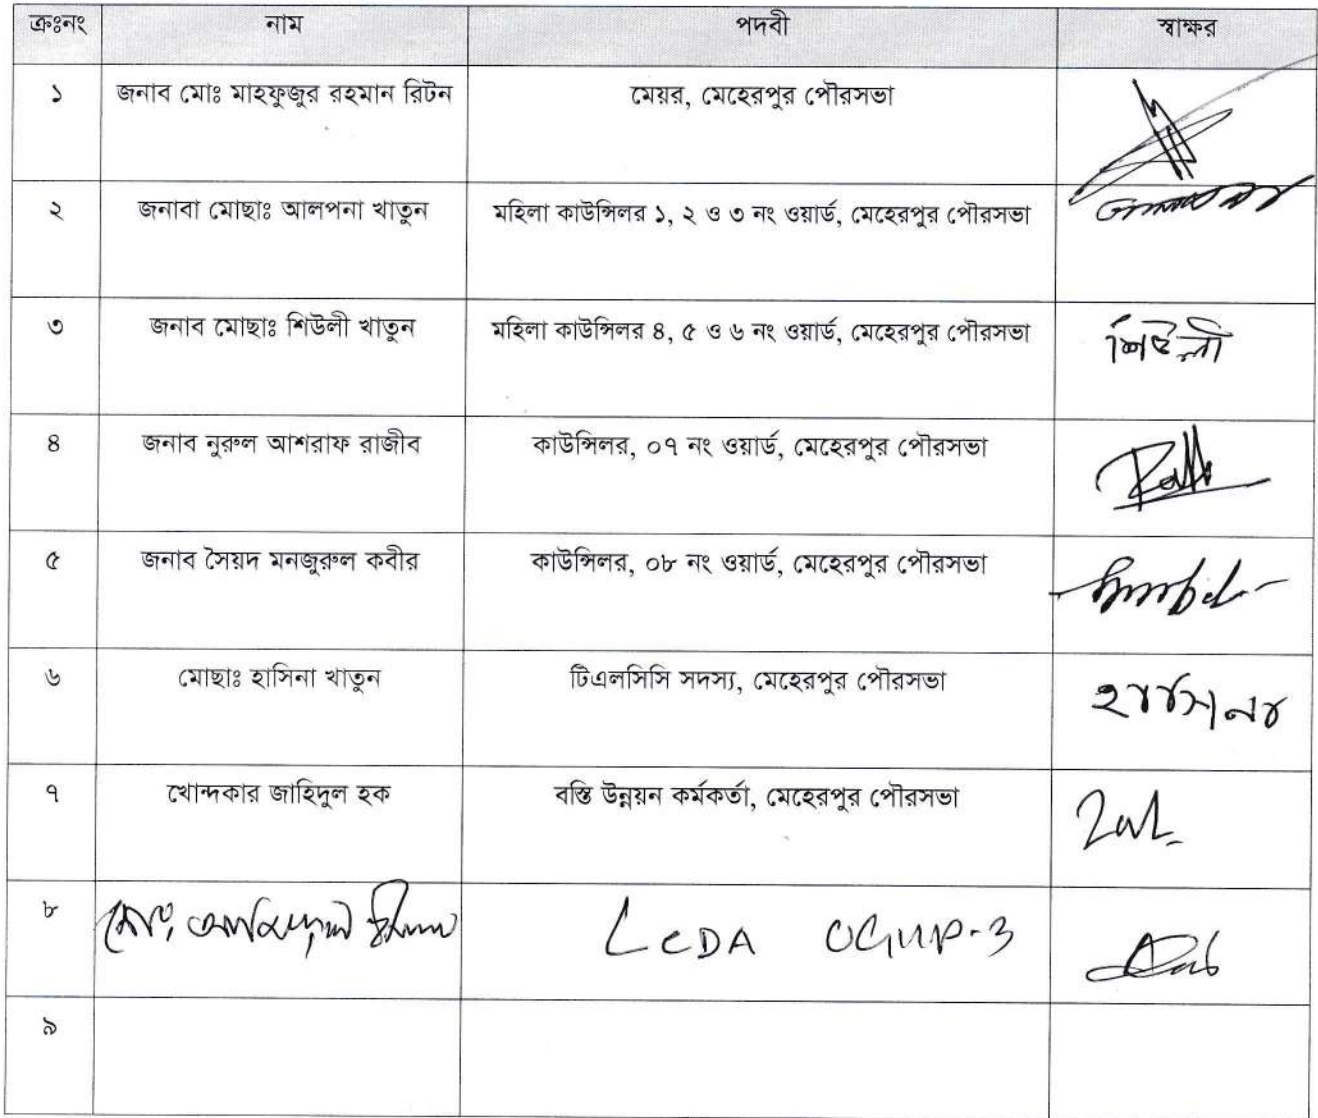 ক্রঃনং নাম পদবী স্বাক্ষর
১ জনাব মোঃ মাহফুজুর রহমান রিটন মেয়র, মেহেরপুর পৌরসভা
২ জনাবা মোছাঃ আলপনা খাতুন মহিলা কাউন্সিলর ১, ২ ও ৩ নং ওয়ার্ড, মেহেরপুর পৌরসভা
৩ জনাব মোছাঃ শিউলী খাতুন মহিলা কাউন্সিলর ৪, ৫ ও ৬ নং ওয়ার্ড, মেহেরপুর পৌরসভা শিউলী
৪ জনাব নুরুল আশরাফ রাজীব কাউন্সিলর, ০৭ নং ওয়ার্ড, মেহেরপুর পৌরসভা
৫ জনাব সৈয়দ মনজুরুল কবীর কাউন্সিলর, ০৮ নং ওয়ার্ড, মেহেরপুর পৌরসভা
৬ মোছাঃ হাসিনা খাতুন টিএলসিসি সদস্য, মেহেরপুর পৌরসভা হাসিনা
৭ খোন্দকার জাহিদুল হক বস্তি উন্নয়ন কর্মকর্তা, মেহেরপুর পৌরসভা
৮ মোঃ LCDA
৯